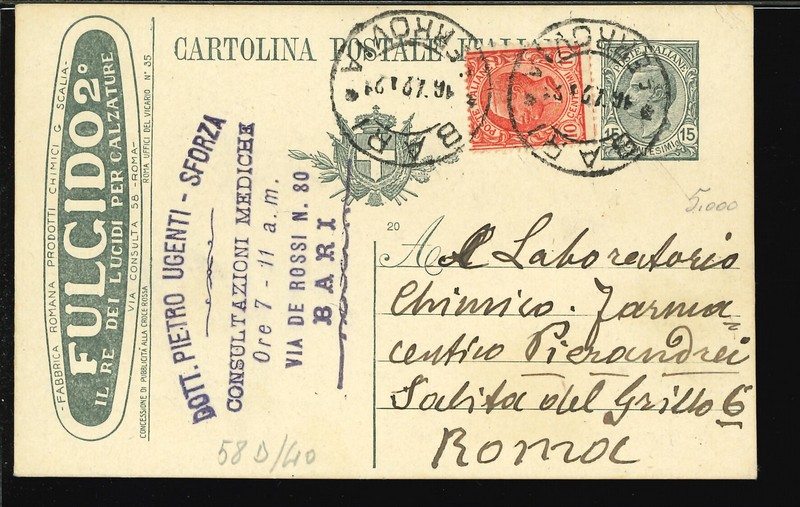 CARTOLINA POSTALE ITALIANA
-FABBRICA ROMANA PRODOTTI CHIMICI G. SCALIA-
FULGIDO 2°
IL RE DEI LUCIDI PER CALZATURE
-VIA CONSULTA 58 -ROMA-
CONCESSIONE DI PUBBLICITÀ ALLA CROCE ROSSA
ROMA UFFICI DEL VICARIO N° 35
DOTT. PIETRO UGENTI - SFORZA
CONSULTAZIONI MEDICHE
Ore 7 - 11 a. m.
VIA DE ROSSI N. 80
BARI
BARI
FERROVIA
BARI
FERROVIA
POSTE ITALIANE
CENT 10
POSTE ITALIANE
15 15
CENTESIMI
5.000
20
A Al Laboratorio
Chimico. Farma=
centico Pierandrei
Salita del Grillo 6
Roma
58 D/40